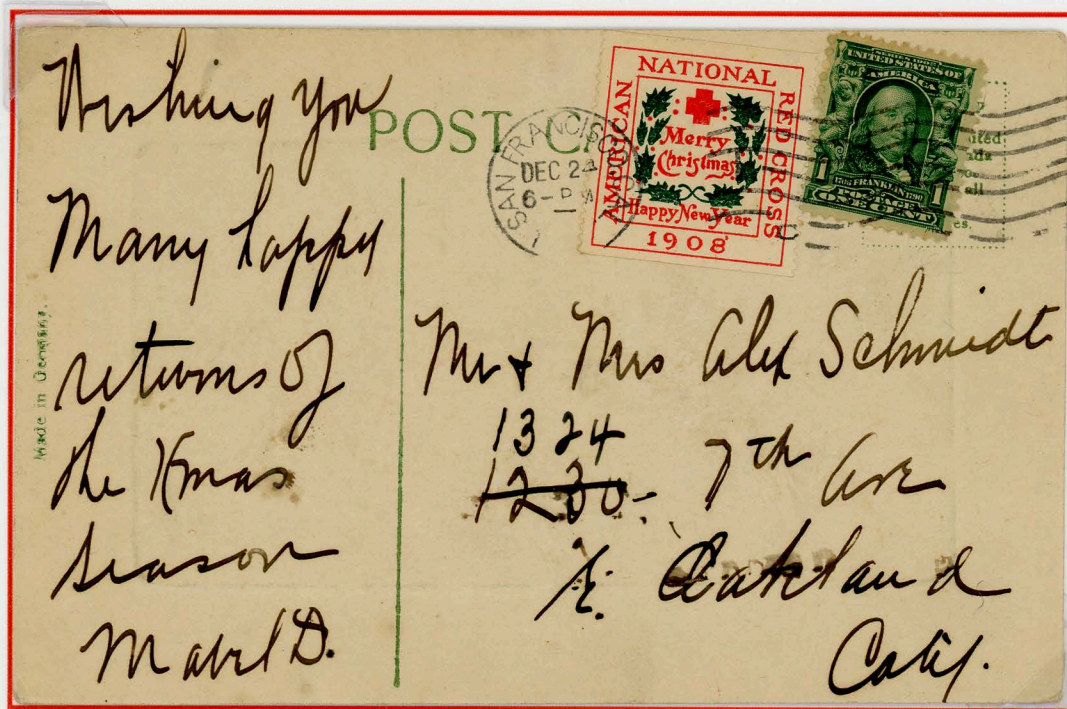 Wishing you
Many happy
returns of
the Xmas
season
Mabel D.
Made in Germany.
POST CA
SAN FRANCISCO
DEC 24
6-PM
AMERICAN NATIONAL RED CROSS
Merry
Christmas
Happy New Year
1908
SERIES 1902
UNITED STATES OF
AMERICA
1706 FRANKLIN 1790
1 POSTAGE 1
ONE CENT
Mr & Mrs Alex Schmidt
1324
1230- 7th Ave
E. Oakland
Calif.